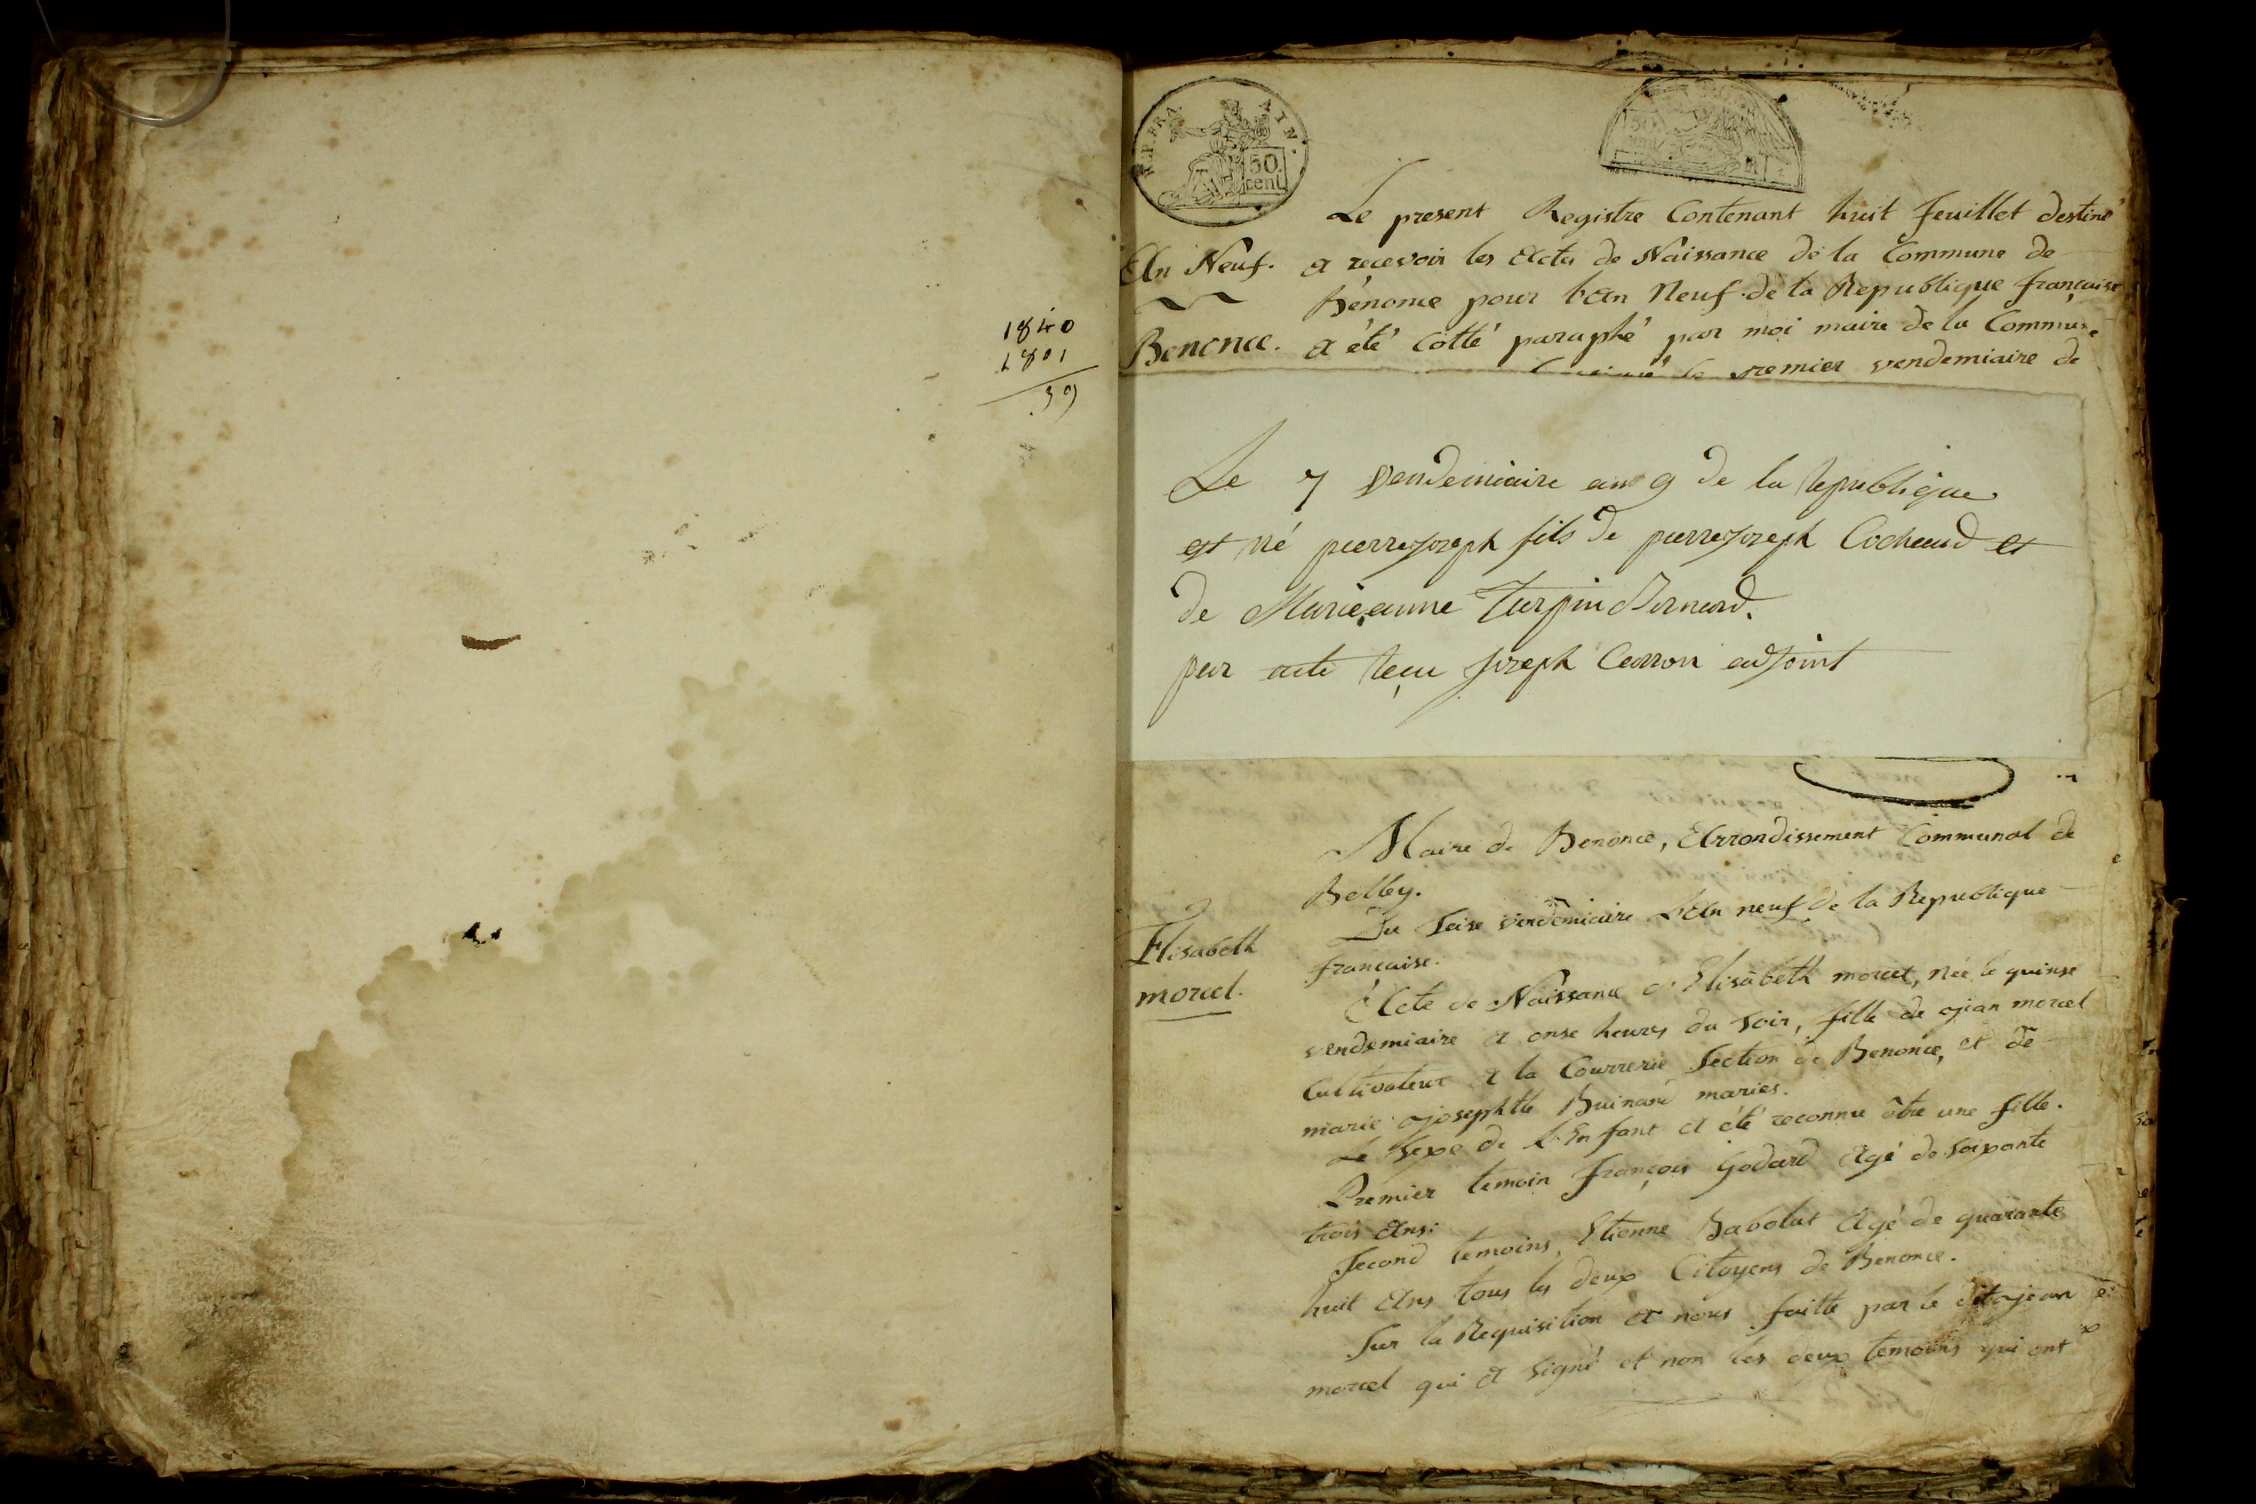 1840
1801
39
REP. FRA
AIN.
50
cent
Le present Registre Contenant huit feuillet destiné
An Neuf. a recevoir les Actes de Naissance de la Commune de
Bénonce pour l'An Neuf de la Republique française
Benonce. a été cotté paraphé par moi maire de la Commune
le premier vendemiaire de
Le 7 Vendemiaire an 9 de la republique
est né pierre joseph fils de pierre joseph Cochaud et
de Marie anne Turpin Bernard.
par acte reçu joseph Carron adjoint
Maire de Benonce, Arrondissement Communal de
Belley.
Du seise vendemiaire l'An neuf de la Republique
française.
Elisabeth
morcel.
Acte de Naissance d'Elisabeth morcel, née le quinse
vendemiaire a onse heures du soir, fille de jean morcel
Cultivateur a la Courrerie Section de Benonce, et de
marie josephtte Buinard mariés.
Le sexe de l'Enfant a été reconnu être une fille.
Premier temoin françois Godard Agé de soixante
trois Ans.
Second temoins, Etienne Babolat Agé de quarante
huit Ans tous les deux Citoyens de Benonce.
Sur la Requisition a nous faitte par le dit jean
morcel qui a signé et non les deux temoins qui ont